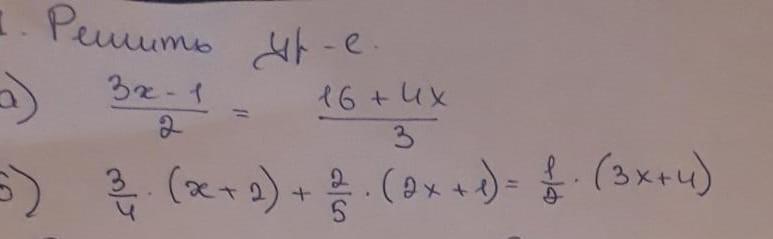 1. Решить ур-е.
а) (3x - 1)/2 = (16 + 4x)/3
б) 3/4 · (x + 2) + 2/5 · (2x + 1) = 1/2 · (3x + 4)